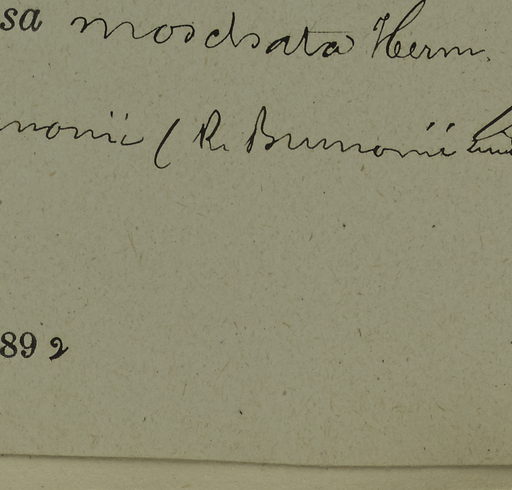 sa moschata Herm.
nonii (R. Brunonii Lind
892